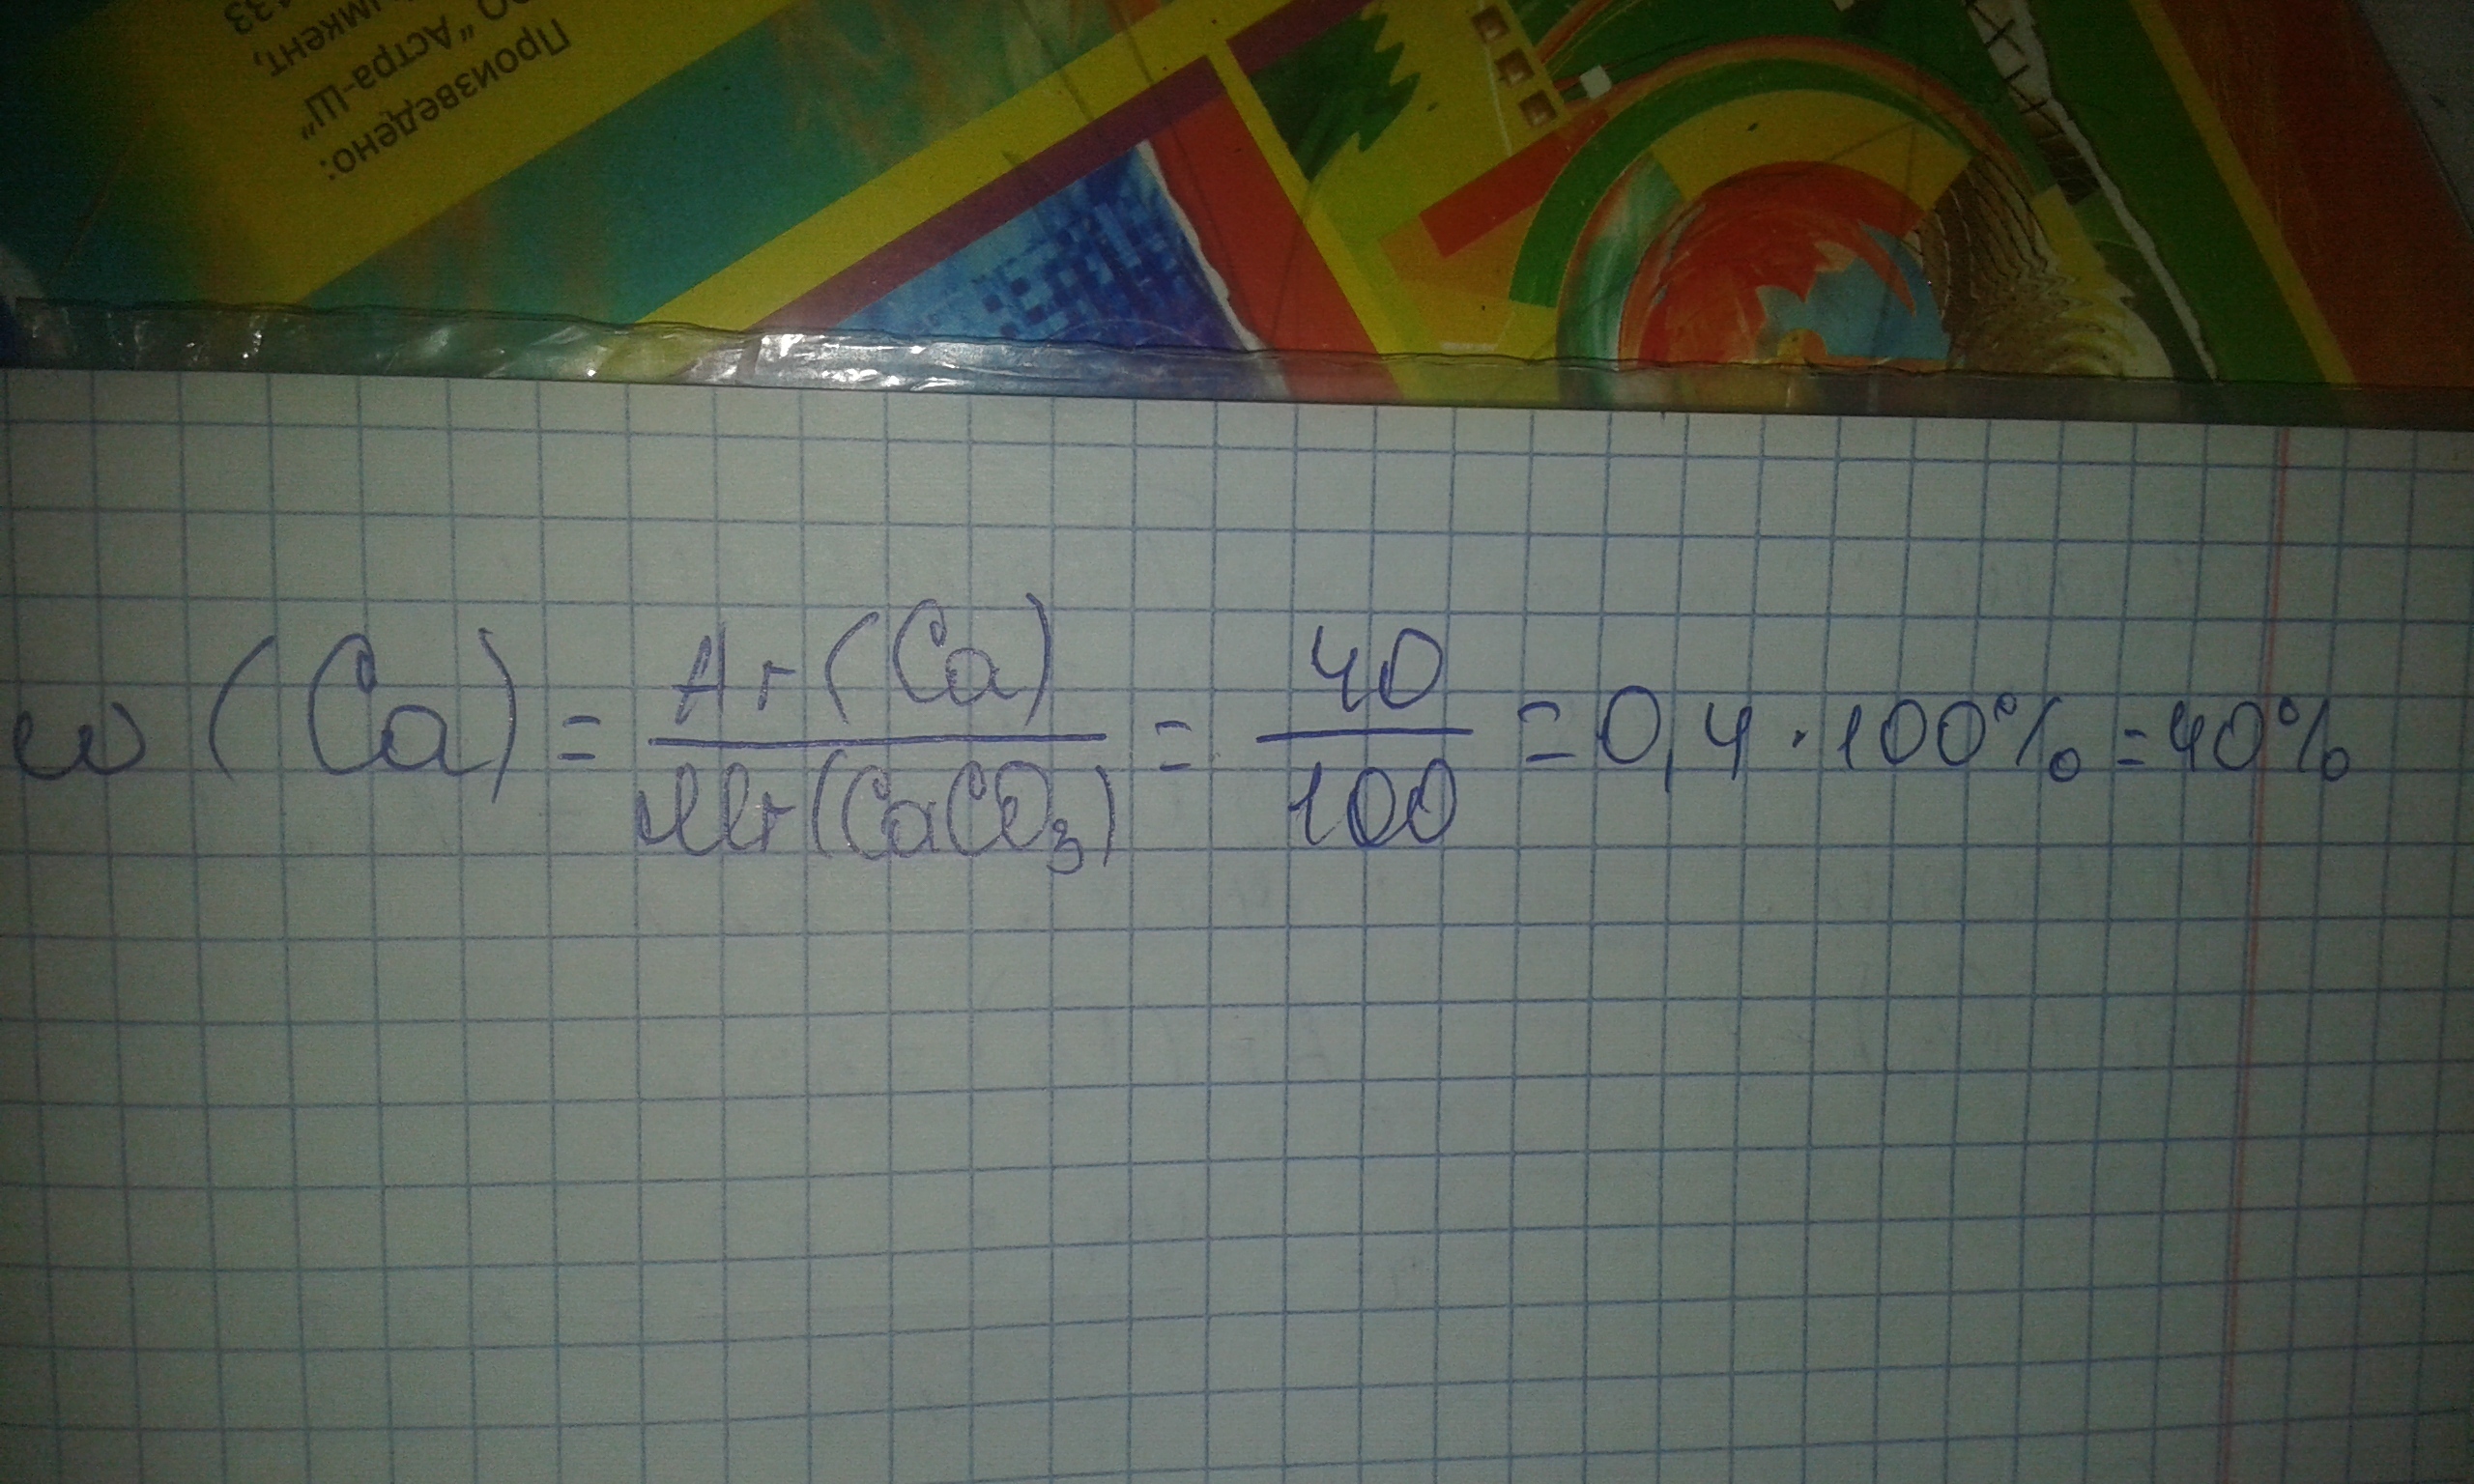 Произведено:
"Астра-Ш"
433
w (Ca) = Ar(Ca) / Mr(CaCO₃) = 40 / 100 = 0,4 · 100% = 40%